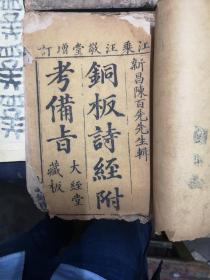 江乘汪敬堂增訂
新昌陳百先先生輯
銅板詩經附
考備旨
大經堂
藏板